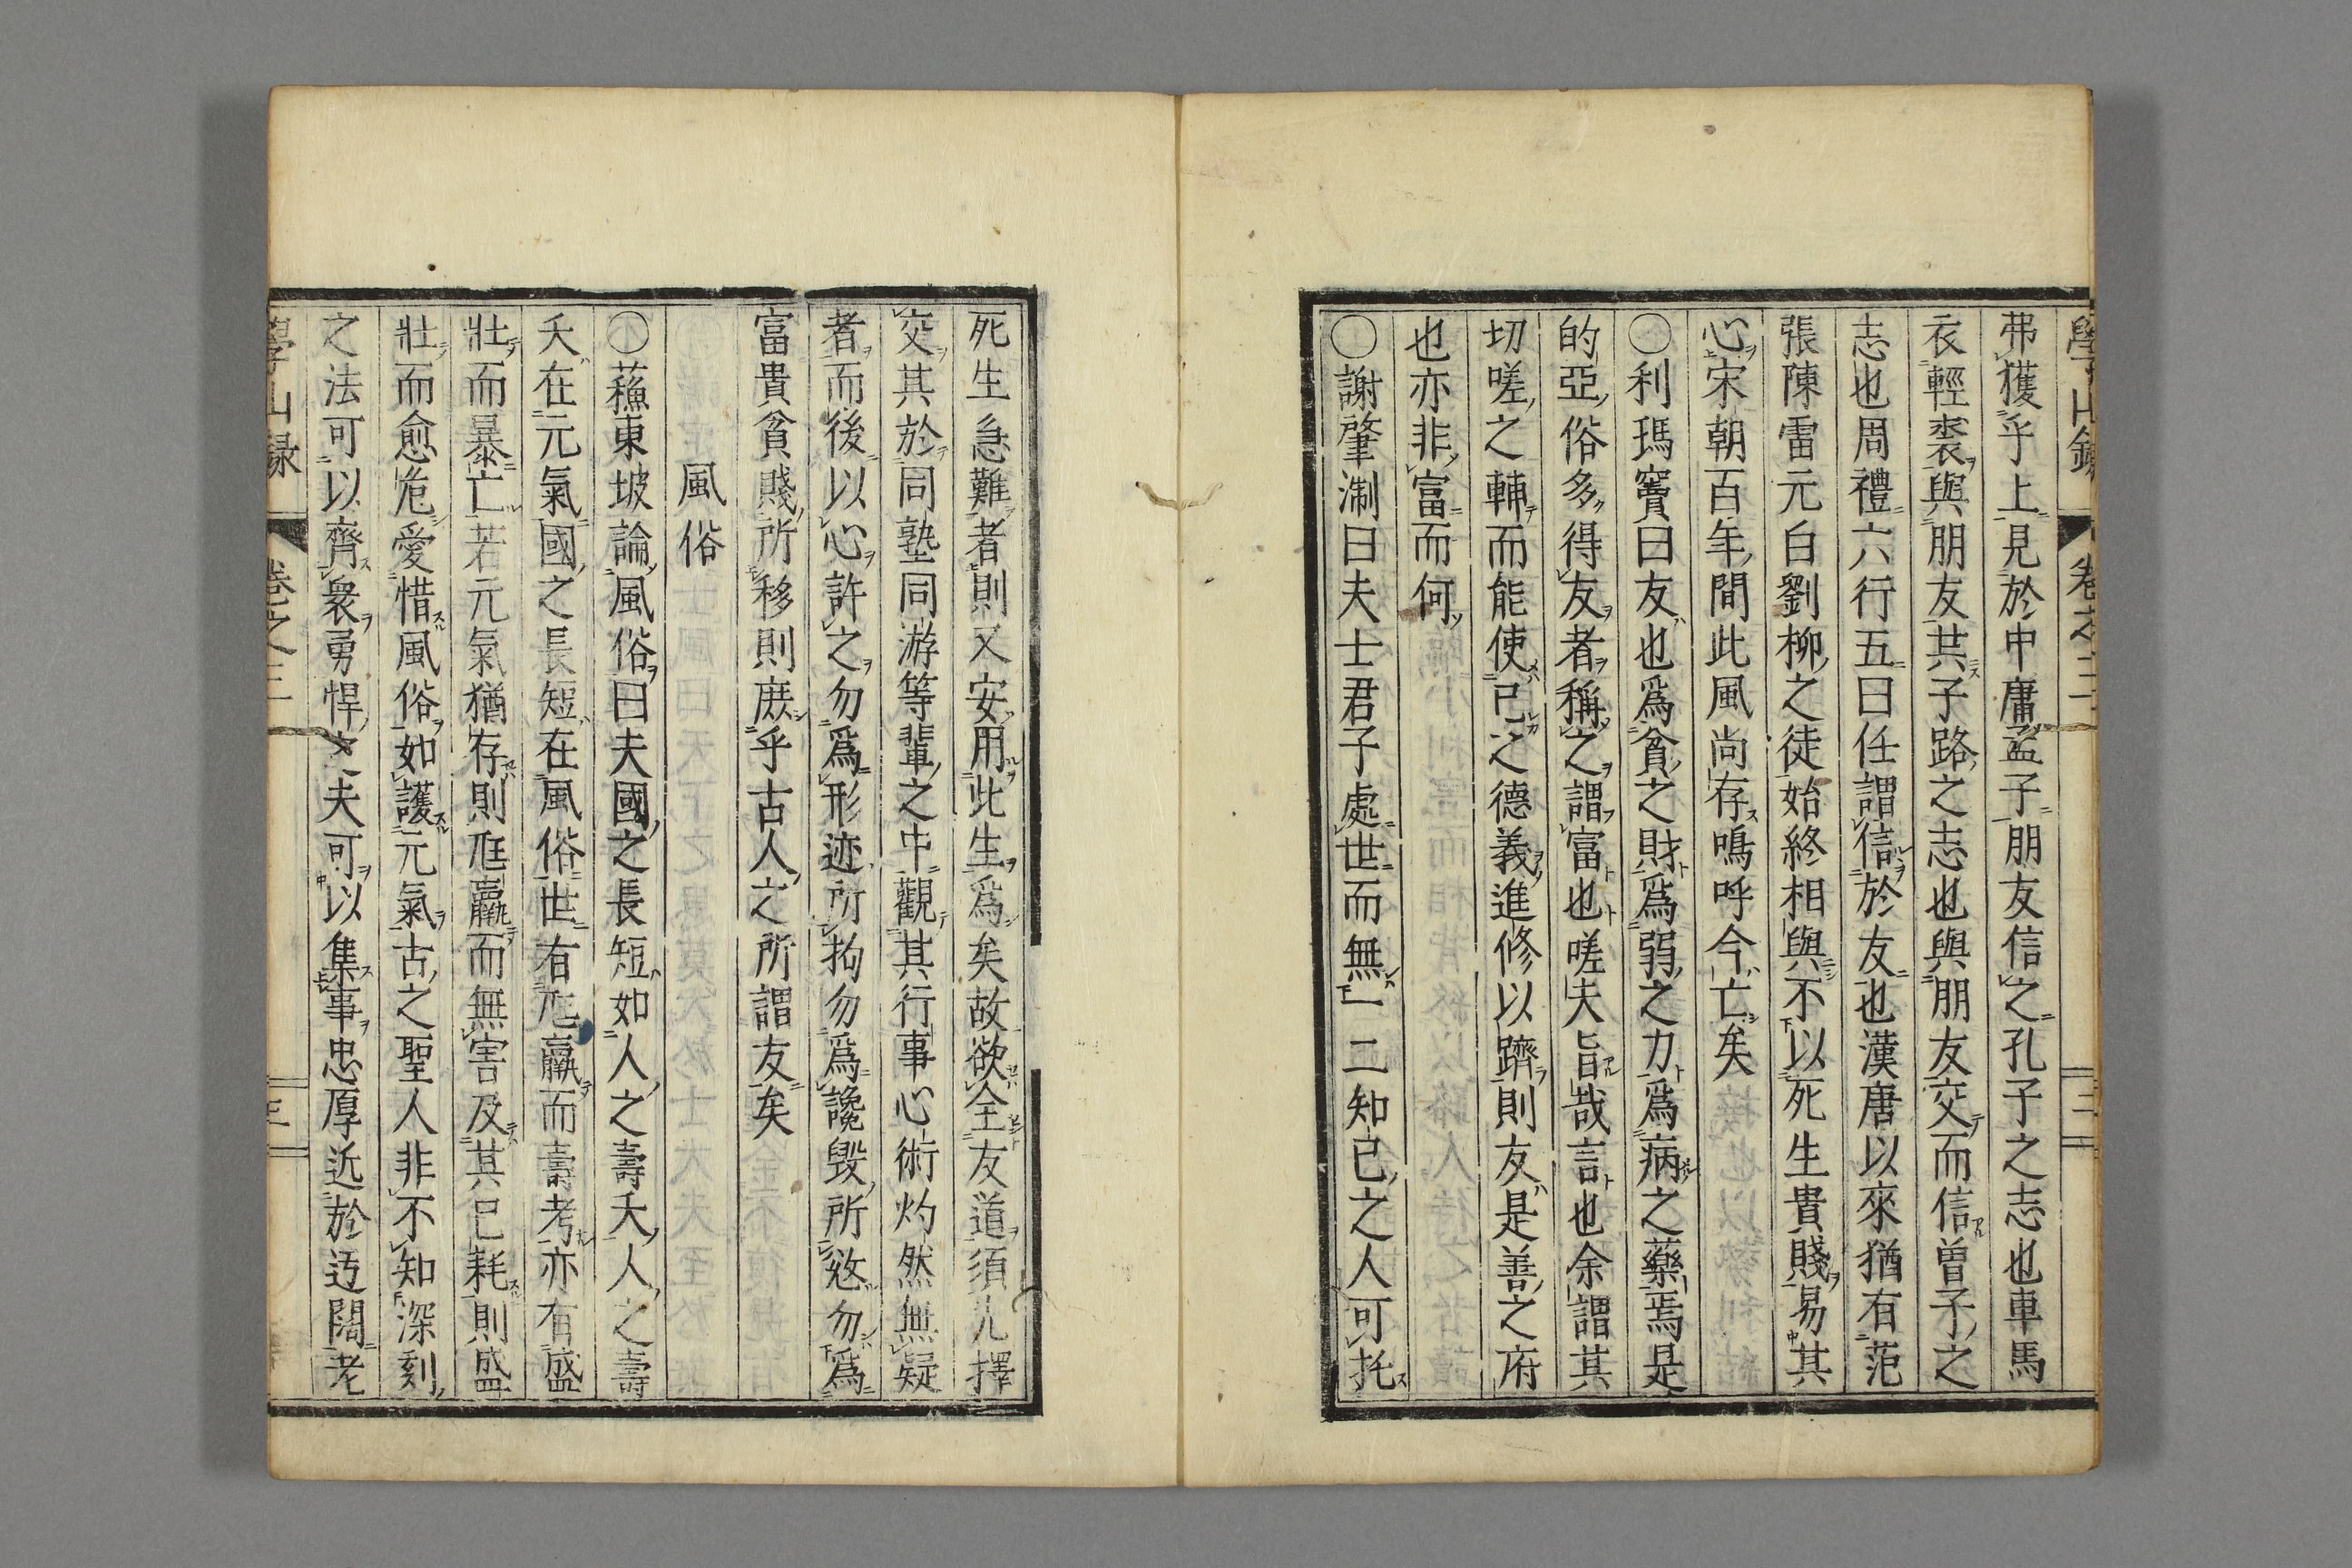 學山錄 卷之三 二
弗獲乎上見於中庸孟子朋友信之孔子之志也車馬
衣輕裘與朋友共子路之志也與朋友交而信曽子之
志也周禮六行五曰任謂信於友也漢唐以來猶有范
張陳雷元白劉柳之徒始終相與不以死生貴賤易其
心宋朝百年間此風尚存嗚呼今亡矣
〇利瑪竇曰友也爲貧之財爲弱之力爲病之藥焉是
的亞俗多得友者稱之謂富也嗟夫旨哉言也余謂其
切嗟之輔而能使己之德義進修以躋則友是善之府
也亦非富而何
〇謝肇淛曰夫士君子處世而無一二知己之人可托
死生急難者則又安用此生爲矣故欲全友道須先擇
交其於同塾同游等輩之中觀其行事心術灼然無疑
者而後以心許之勿爲形迹所拘勿爲讒毀所惑勿爲
富貴貧賤所移則庶乎古人之所謂友矣
風俗
〇蘓東坡論風俗曰夫國之長短如人之壽夭人之壽
夭在元氣國之長短在風俗世有尫羸而壽考亦有盛
壯而暴亡若元氣猶存則尫羸而無害及其已耗則盛
壯而愈危愛惜風俗如護元氣古之聖人非不知深刻
之法可以齊衆勇悍之夫可以集事忠厚近於迃闊老
學山録 卷之三 三